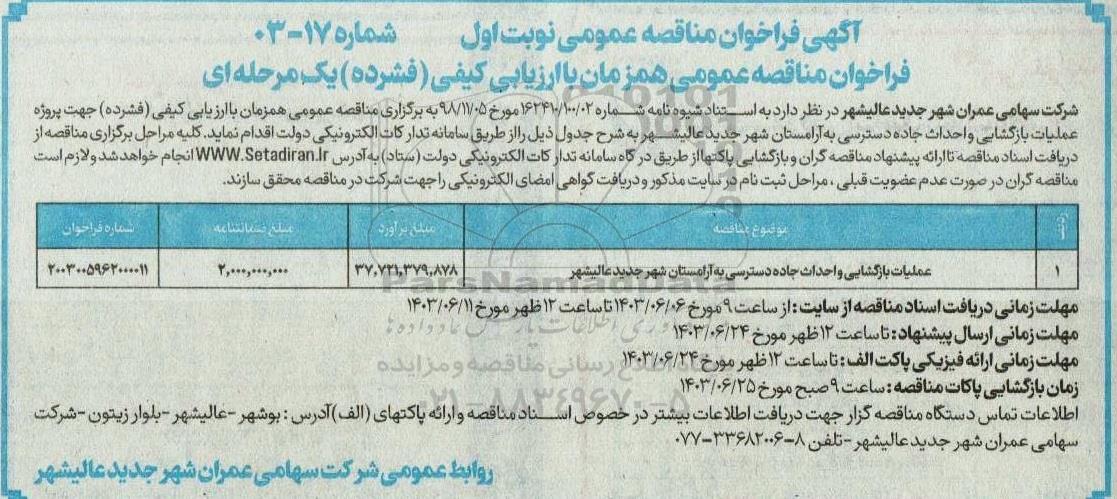 آگهی فراخوان مناقصه عمومی نوبت اول شماره ۱۷-۰۳
فراخوان مناقصه عمومی همزمان با ارزیابی کیفی (فشرده) یک مرحله ای
شرکت سهامی عمران شهر جدید عالیشهر در نظر دارد به استناد شیوه نامه شماره ۱۶۲۴۱۰/۱۰۰/۰۲ مورخ ۹۸/۱۱/۰۵ به برگزاری مناقصه عمومی همزمان با ارزیابی کیفی (فشرده) جهت پروژه
عملیات بازگشایی و احداث جاده دسترسی به آرامستان شهر جدید عالیشهر به شرح جدول ذیل را از طریق سامانه تدارکات الکترونیکی دولت اقدام نماید. کلیه مراحل برگزاری مناقصه از
دریافت اسناد مناقصه تا ارائه پیشنهاد مناقصه گران و بازگشایی پاکتها از طریق درگاه سامانه تدارکات الکترونیکی دولت (ستاد) به آدرس WWW.Setadiran.Ir انجام خواهد شد و لازم است
مناقصه گران در صورت عدم عضویت قبلی، مراحل ثبت نام در سایت مذکور و دریافت گواهی امضای الکترونیکی را جهت شرکت در مناقصه محقق سازند.
ردیف موضوع مناقصه مبلغ برآورد مبلغ ضمانتنامه شماره فراخوان
۱ عملیات بازگشایی و احداث جاده دسترسی به آرامستان شهر جدید عالیشهر ۳۷,۷۲۱,۳۷۹,۸۷۸ ۲,۰۰۰,۰۰۰,۰۰۰ ۲۰۰۳۰۰۵۹۶۲۰۰۰۰۱۱
ParsNamadData
مهلت زمانی دریافت اسناد مناقصه از سایت: از ساعت ۹ مورخ ۱۴۰۳/۰۶/۰۶ تا ساعت ۱۲ ظهر مورخ ۱۴۰۳/۰۶/۱۱
مهلت زمانی ارسال پیشنهاد: تا ساعت ۱۲ ظهر مورخ ۱۴۰۳/۰۶/۲۴
مهلت زمانی ارائه فیزیکی پاکت الف: تا ساعت ۱۲ ظهر مورخ ۱۴۰۳/۰۶/۲۴
اطلاع رسانی مناقصه و مزایده
زمان بازگشایی پاکات مناقصه: ساعت ۹ صبح مورخ ۱۴۰۳/۰۶/۲۵
۰۲۱-۸۸۳۴۹۶۷۰-۵
اطلاعات تماس دستگاه مناقصه گزار جهت دریافت اطلاعات بیشتر در خصوص اسناد مناقصه و ارائه پاکتهای (الف) آدرس: بوشهر - عالیشهر - بلوار زیتون - شرکت
سهامی عمران شهر جدید عالیشهر - تلفن ۸-۳۳۶۸۲۰۰۶-۰۷۷
روابط عمومی شرکت سهامی عمران شهر جدید عالیشهر